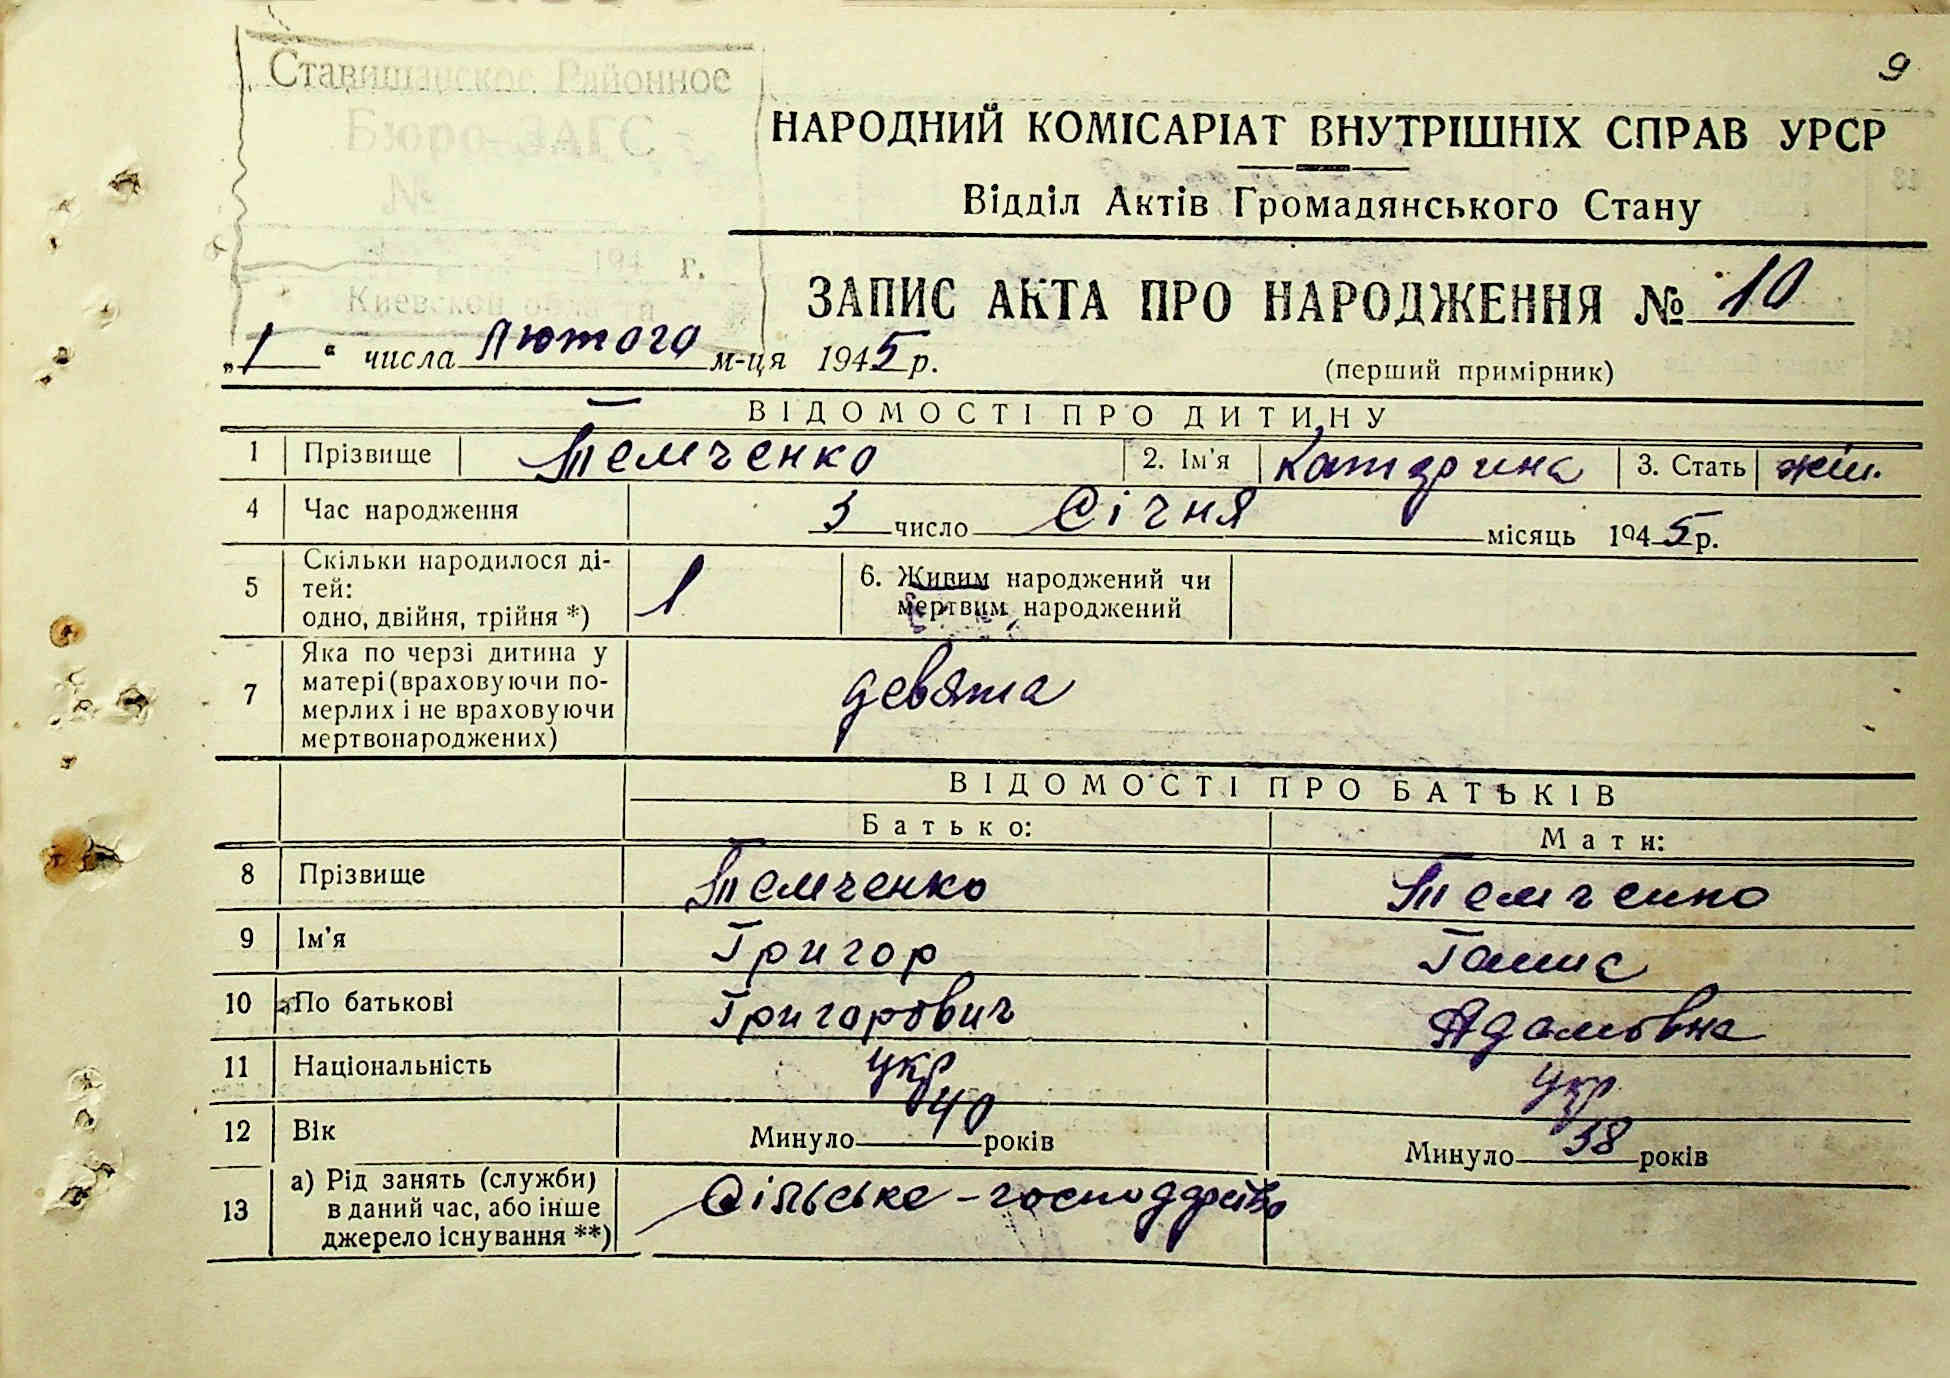 9
Ставищанское Районное
Бюро ЗАГС
№
194 г.
Киевской области
НАРОДНИЙ КОМІСАРІАТ ВНУТРІШНІХ СПРАВ УРСР
Відділ Актів Громадянського Стану
ЗАПИС АКТА ПРО НАРОДЖЕННЯ № 10
„1“ числа лютого м-ця 1945 р.
(перший примірник)
ВІДОМОСТІ ПРО ДИТИНУ
1 Прізвище Темченко 2. Ім'я Катерина 3. Стать жін.
4 Час народження 3 число Січня місяць 1945 р.
5 Скільки народилося ді-
тей:
одно, двійня, трійня *) 1
6. Живим народжений чи
мертвим народжений
7 Яка по черзі дитина у
матері (враховуючи по-
мерлих і не враховуючи
мертвонароджених) девята
ВІДОМОСТІ ПРО БАТЬКІВ
Батько: Мати:
8 Прізвище Темченко Темченко
9 Ім'я Григор Ганна
10 По батькові Григорович Адамовна
11 Національність укр укр
12 Вік Минуло 40 років Минуло 38 років
13 а) Рід занять (служби)
в даний час, або інше
джерело існування **) Сільське-господарство